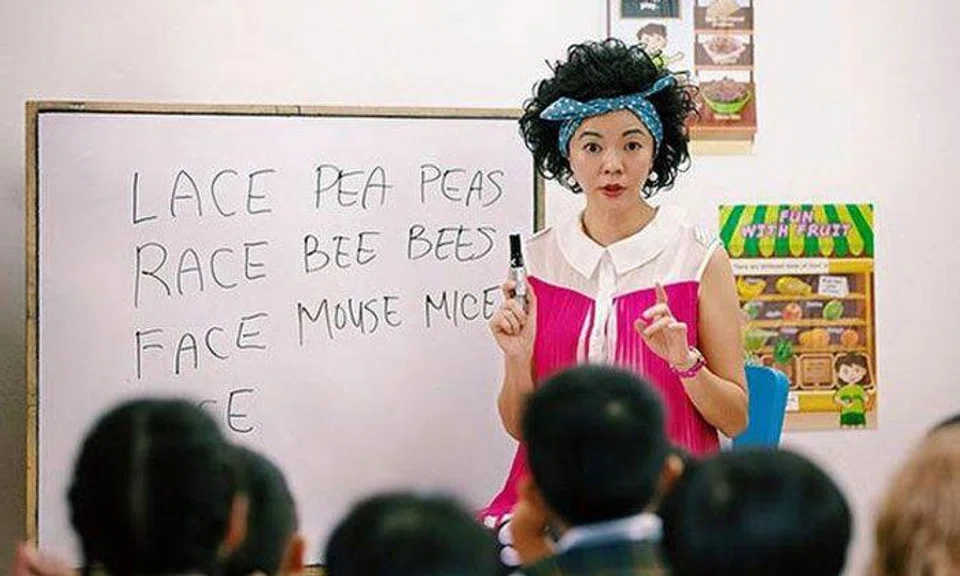 LACE PEA PEAS
RACE BEE BEES
FACE MOUSE MICE
CE
FUN
WITH FRUIT